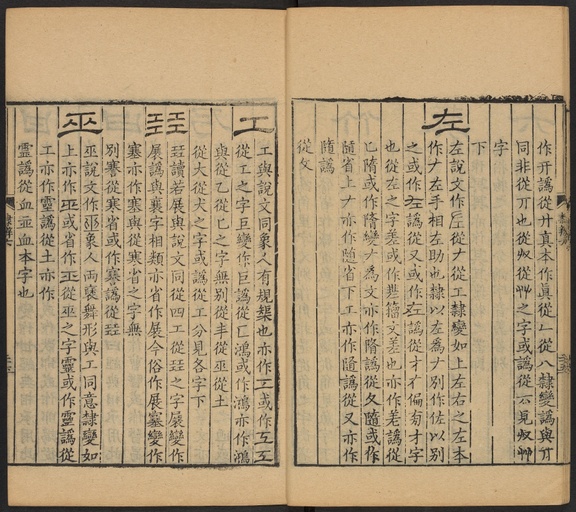 作亓譌從廾真本作眞從𠃊從八隸變譌與丌
同非從丌也從収從艸之字或譌從六見収艸
字
下
左
左說文作𠂇從𠂇從工隸變如上左右之左本
作𠂇左手相左助也隸以左為𠂇別作佐以別
之或作左譌從又或作左譌從才才偏㫄才字
也從左之字差或作差籀文差也亦作差譌從
隨或作隋變𠂇為文亦作隋譌從久隨或作
隨省上𠂇亦作隨省下工亦作隨譌從又亦作
隨譌
從攵
工
工與說文同象人有規榘也亦作工或作
從工之字巨變作巨譌從匚鴻或作鴻亦作鴻
與從乙從匕之字無別從丰從巫從土
從大從犬之字或譌從工分見各字下
㠭
㠭讀若展與說文同從四工從㠭之字展變作
展譌與襄字相類亦省作展今俗作展塞變作
塞亦作塞與從寒省之字無
別謇從寒省或作謇譌從㠭
巫
巫說文作巫象人兩褎舞形與工同意隸變如
上亦作巫或省作巫從巫之字靈或作靈譌從
工亦作靈譌從土亦作
靈譌從血並血本字也